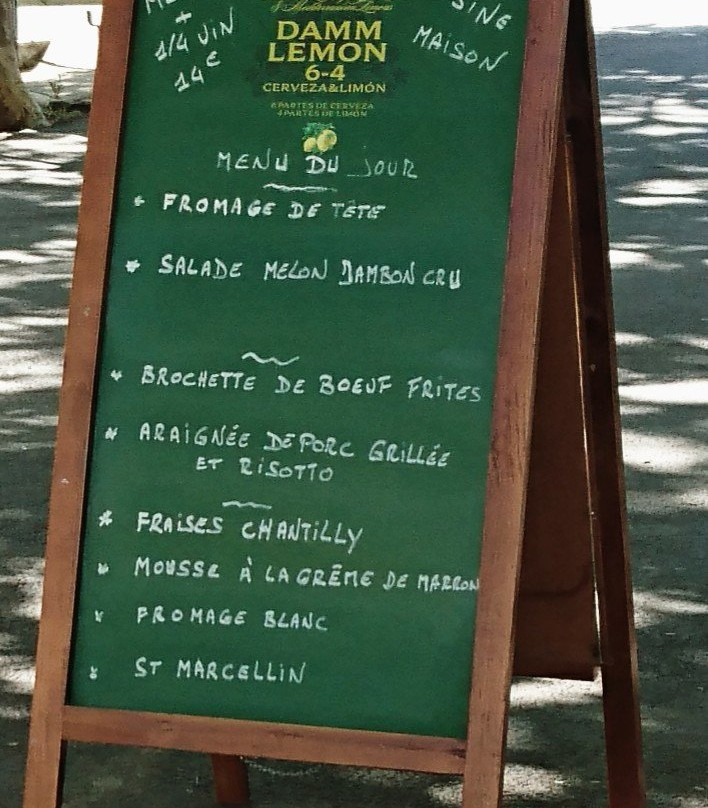 +
1/4 VIN
14€
DAMM
LEMON
6-4
CERVEZA&LIMÓN
6 PARTES DE CERVEZA
4 PARTES DE LIMÓN
MAISON
MENU DU JOUR
* FROMAGE DE TÊTE
* SALADE MELON JAMBON CRU
* BROCHETTE DE BOEUF FRITES
* ARAIGNÉE DE PORC GRILLÉE
ET RISOTTO
* FRAISES CHANTILLY
* MOUSSE À LA CRÊME DE MARRON
* FROMAGE BLANC
* ST MARCELLIN